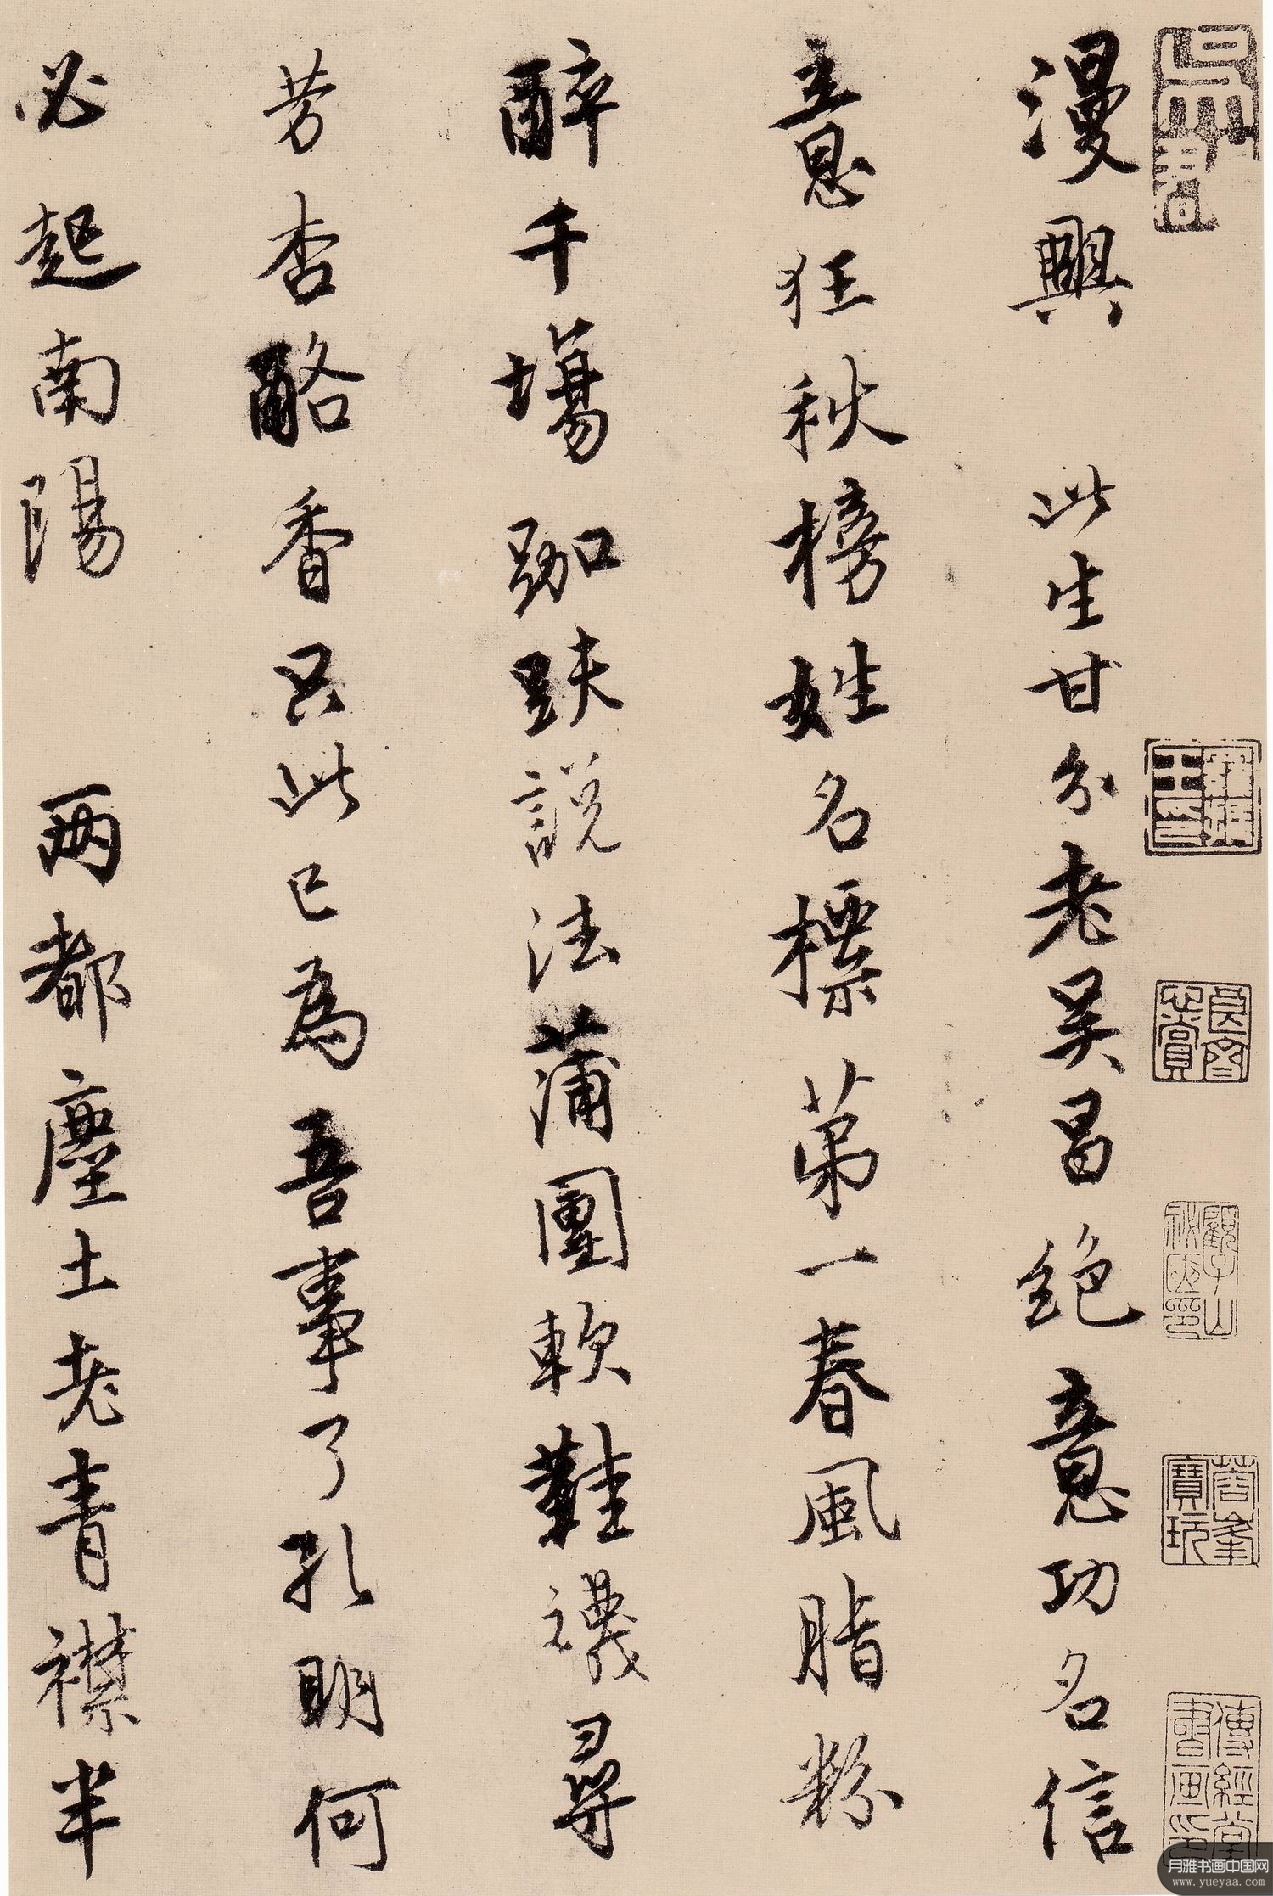 漫興 此生甘分老吴昌絶意功名信
意狂秋榜姓名標第一春風脂粉
醉千場跏趺說法蒲團軟鞋襪尋
芳杏酪香只此已爲吾事了孔明何
必起南陽 兩都塵土老青襟半
顧子山秘篋印
蓉峯寶玩
傳經堂書画印
月雅书画中国网
www.yueyaa.com